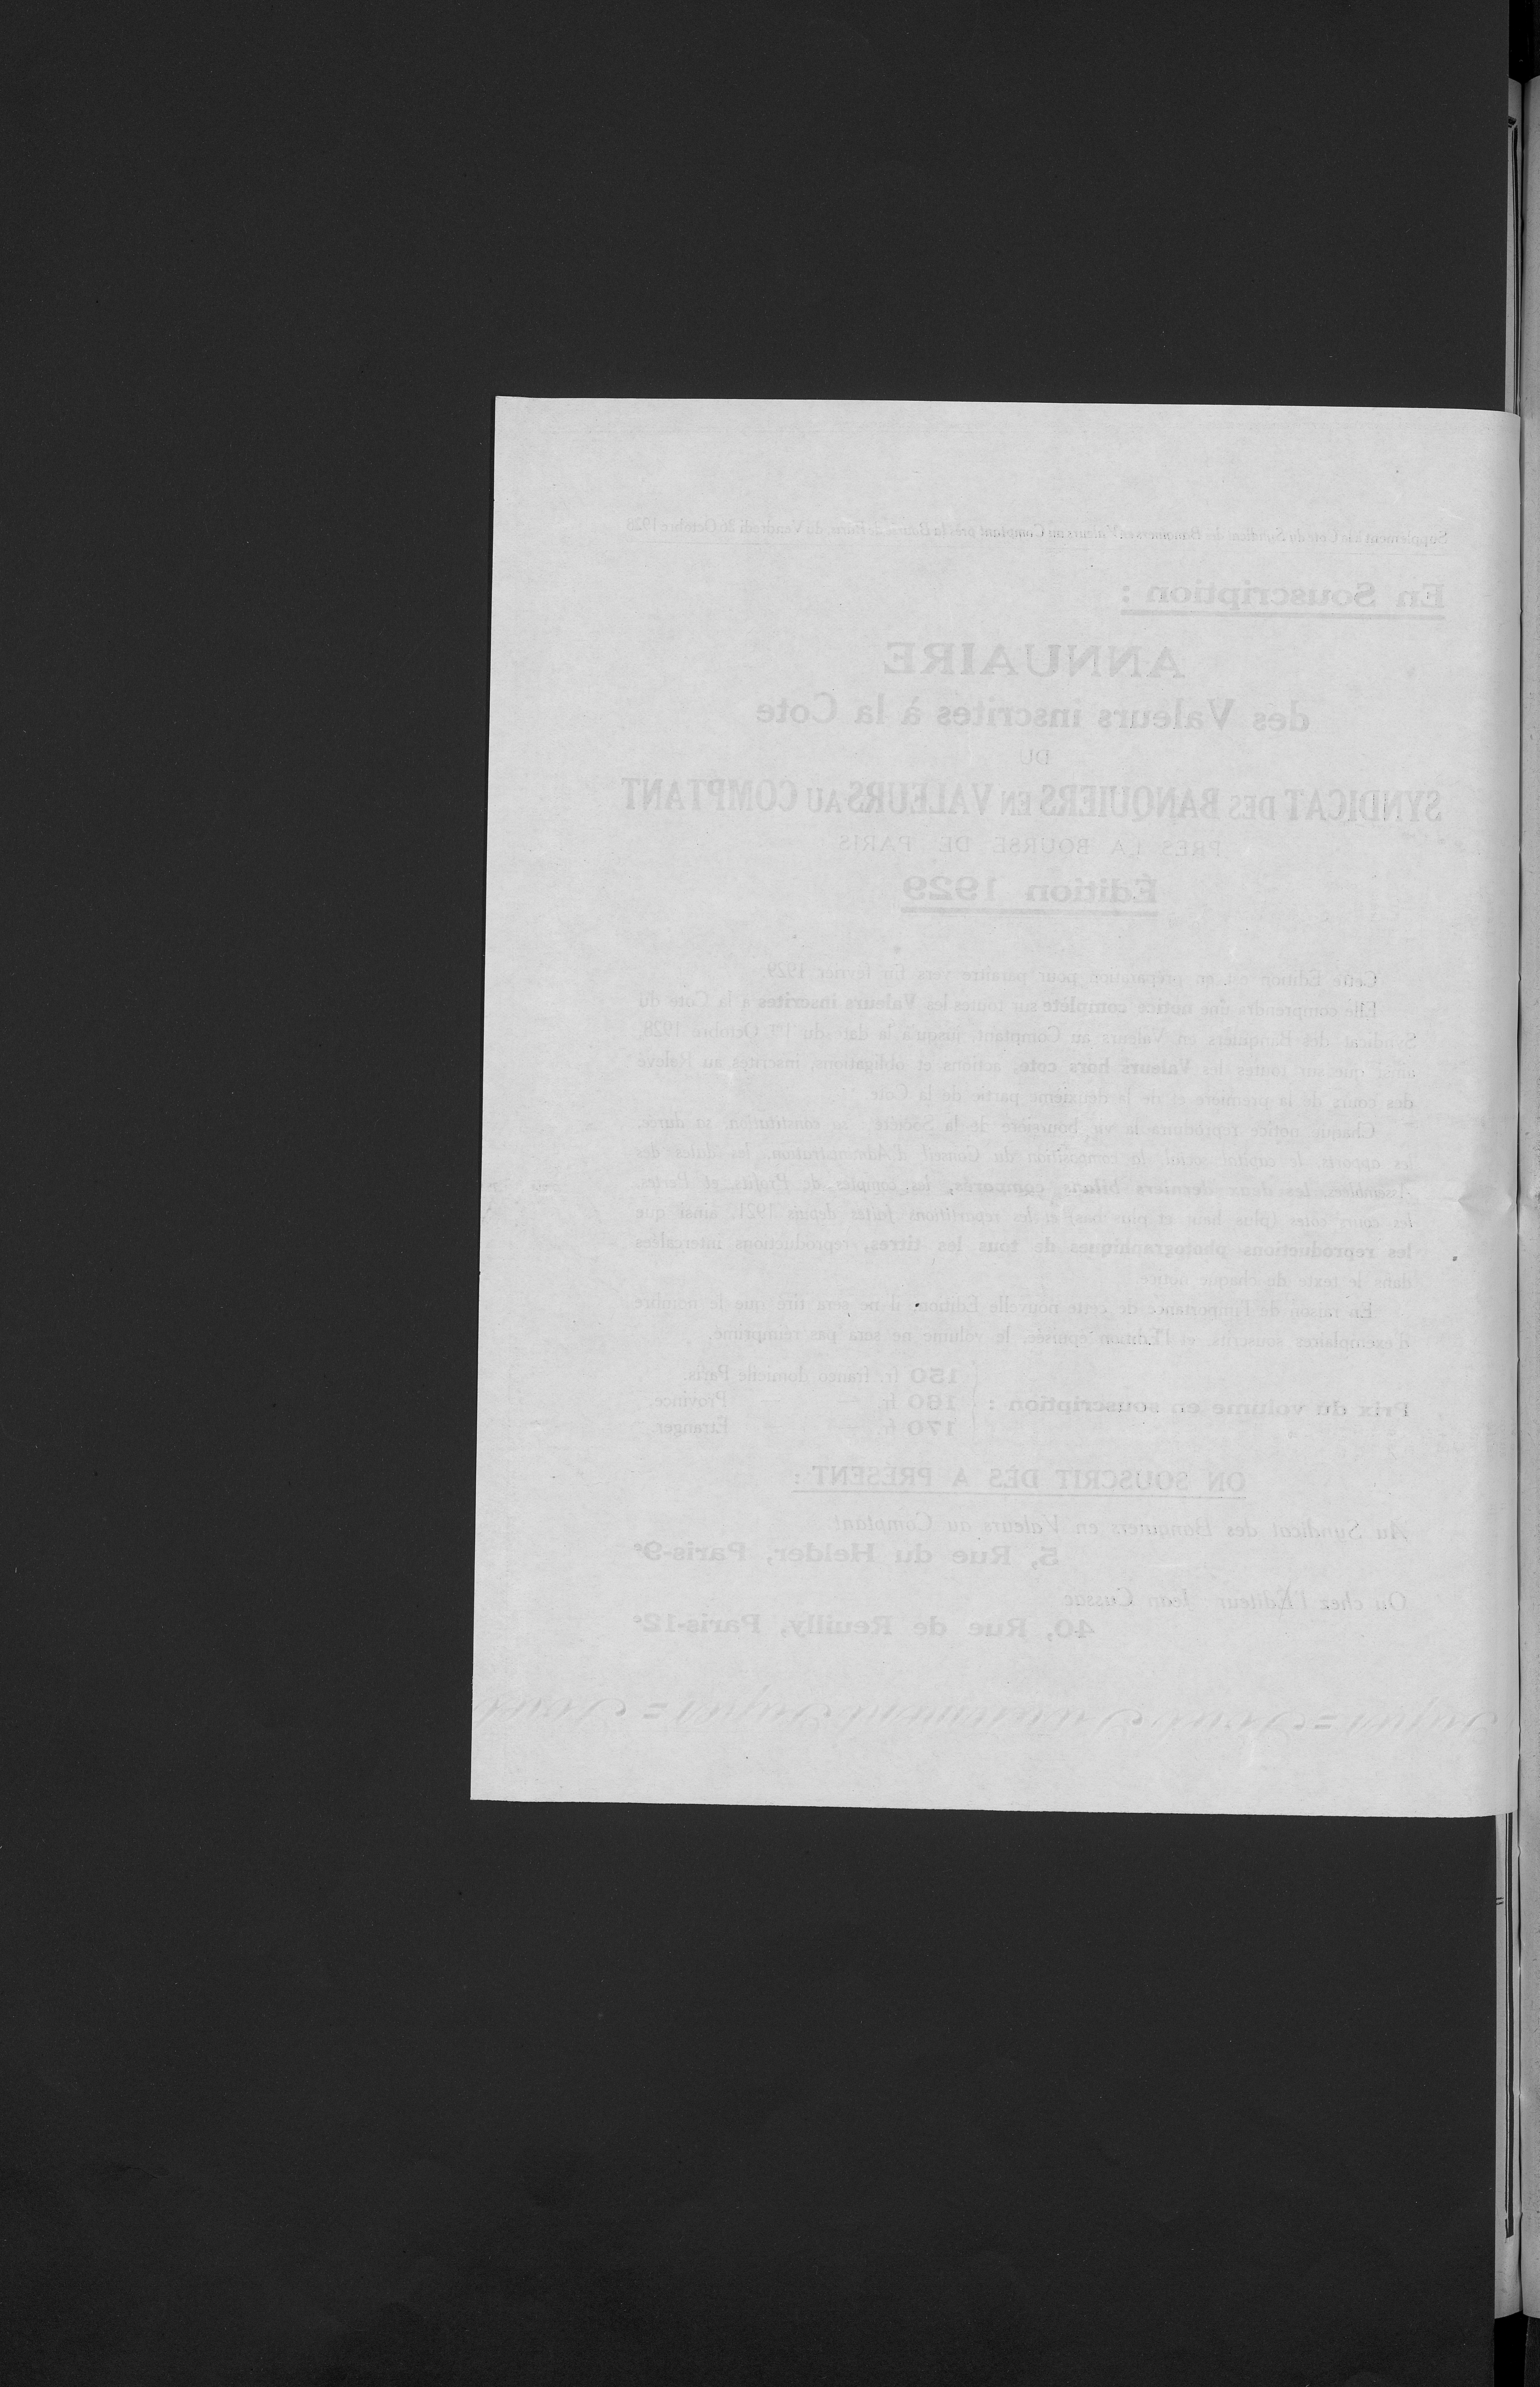 Supplément à la Cote du Syndicat des Banquiers en Valeurs au Comptant près la Bourse de Paris, du Vendredi 26 Octobre 1928
En Souscription :
ANNUAIRE
des Valeurs inscrites à la Cote
DU
SYNDICAT DES BANQUIERS EN VALEURS AU COMPTANT
PRÈS LA BOURSE DE PARIS
Édition 1929
Cette Édition est en préparation pour paraître vers fin février 1929.
Elle comprendra une notice complète sur toutes les Valeurs inscrites à la Cote du
Syndicat des Banquiers en Valeurs au Comptant jusqu'à la date du 1er Octobre 1928,
ainsi que sur toutes les Valeurs hors cote, actions et obligations, inscrites au Relevé
des cours de la première et de la deuxième partie de la Cote.
Chaque notice reproduira la vie boursière de la Société, sa constitution, sa durée,
les apports, le capital social, la composition du Conseil d'Administration, les dates des
Assemblées, les deux derniers bilans comparés, les comptes de Profits et Pertes,
les cours cotés (plus haut et plus bas) et les répartitions faites depuis 1921, ainsi que
les reproductions photographiques de tous les titres, reproductions intercalées
dans le texte de chaque notice.
En raison de l'importance de cette nouvelle Édition, il ne sera tiré que le nombre
d'exemplaires souscrits, et l'Édition épuisée, le volume ne sera pas réimprimé.
150 fr. franco domicile Paris.
Prix du volume en souscription : 160 fr. — — Province.
170 fr. — — Étranger.
ON SOUSCRIT DÈS A PRÉSENT :
Au Syndicat des Banquiers en Valeurs au Comptant
5, Rue du Helder, Paris-9e
Ou chez l'Éditeur Jean Cussac
40, Rue de Reuilly, Paris-12e